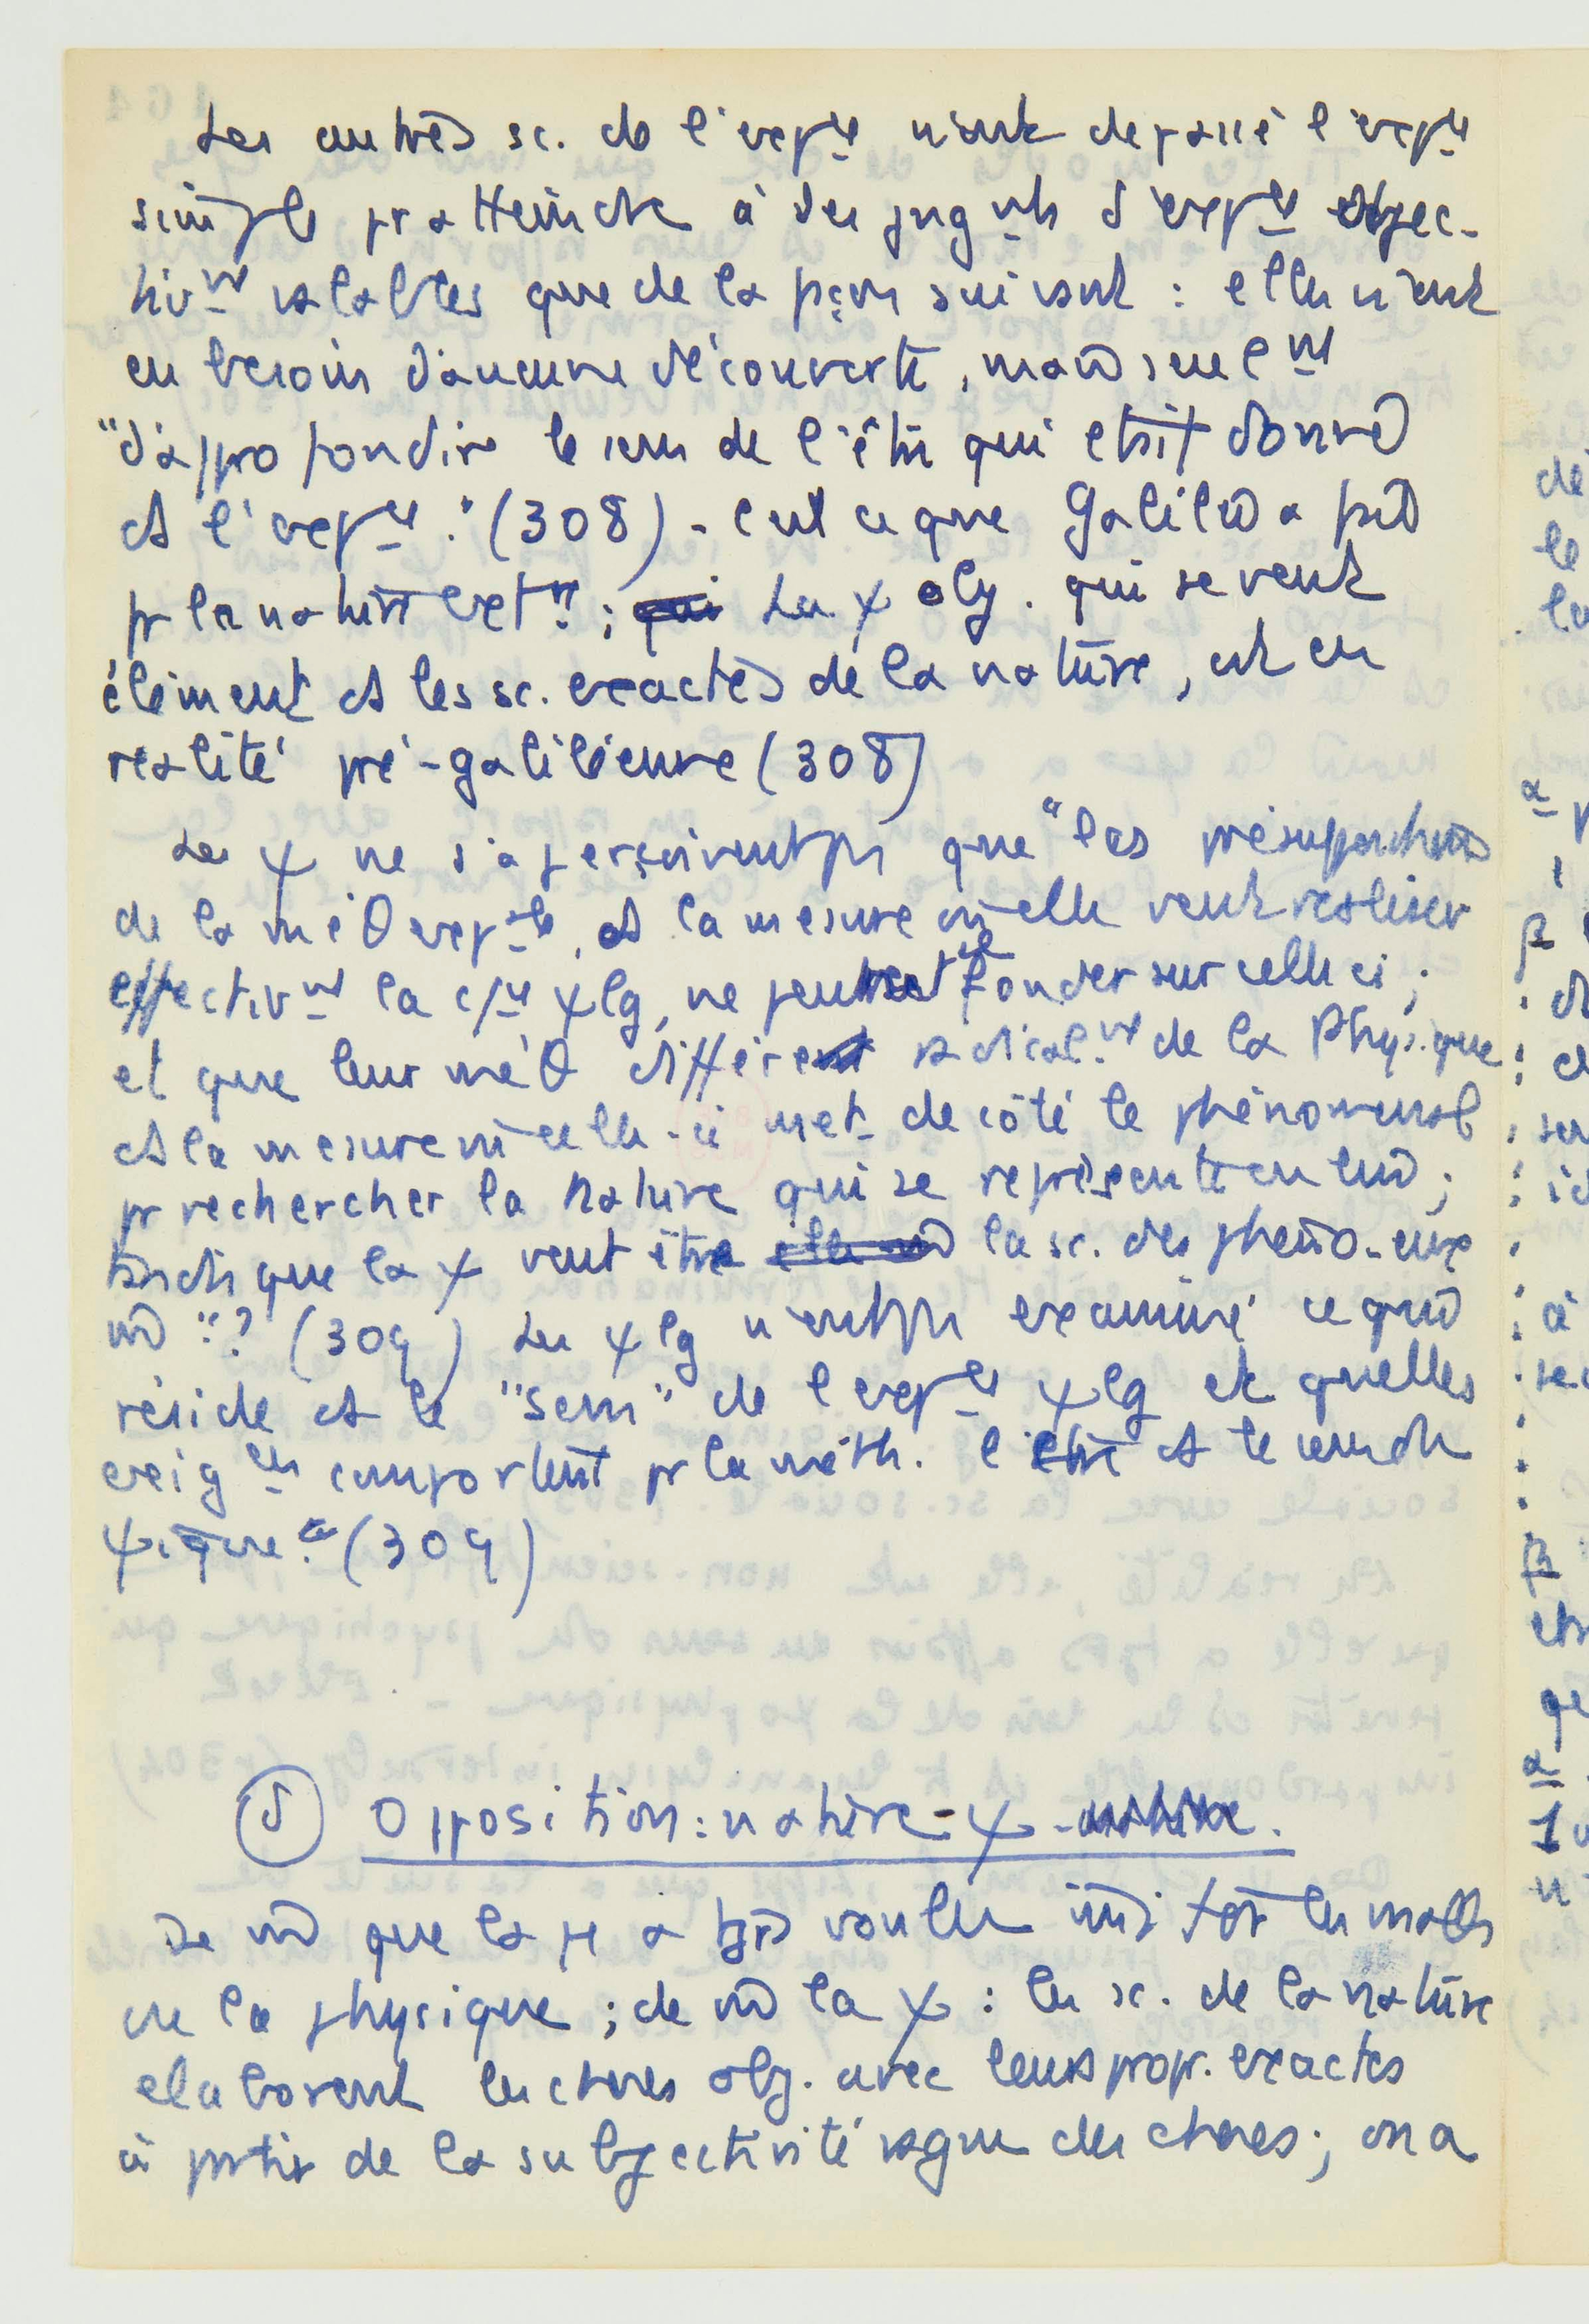 Les autres sc. de l'expce n'ont dépassé l'expce
simple pr atteindre à des jugmts d'expce objec-
tivmt valables que de la façon suivant : elles n'ont
eu besoin d'aucune découverte, mais seulmt
"d'approfondir le sens de l'être qui était donné
ds l'expce" (308) - C'est ce que Galilée a fait
pr la nature extne ; qui La ψ obj. qui se veut
élément ds les sc. exactes de la nature, est en
réalité pré-galiléenne (308)
Les ψ ne s'aperçoivent pas que "les présuppositions
de la méθ expale, ds la mesure où elle veut réaliser
effectivmt la cpce ψlg, ne peut se fonder sur celle ci ;
et que leur méθ diffère radicalmt de la Physique
ds la mesure où celle-ci met de côté le phénoménal
pr rechercher la Nature qui se représente en lui ;
tandis que la ψ veut être la sc. des phéno-eux
m̂" ? (309) Les ψlg n'ont pas examiné ce qui
réside ds le "sens" de l'expce ψlg et quelles
exigces comportent pr la méth. l'être ds le sens du
ψique." (309)
δ Opposition : nature - ψ -
De m̂ que la φ a tjrs voulu imiter les maths
ou la physique ; de m̂ la ψ : les sc. de la nature
élaborent les choses obj. avec leurs propr. exactes
à partir de la subjectivité vague des choses ; on a
dé
le
la
α
β
à
β
α
1